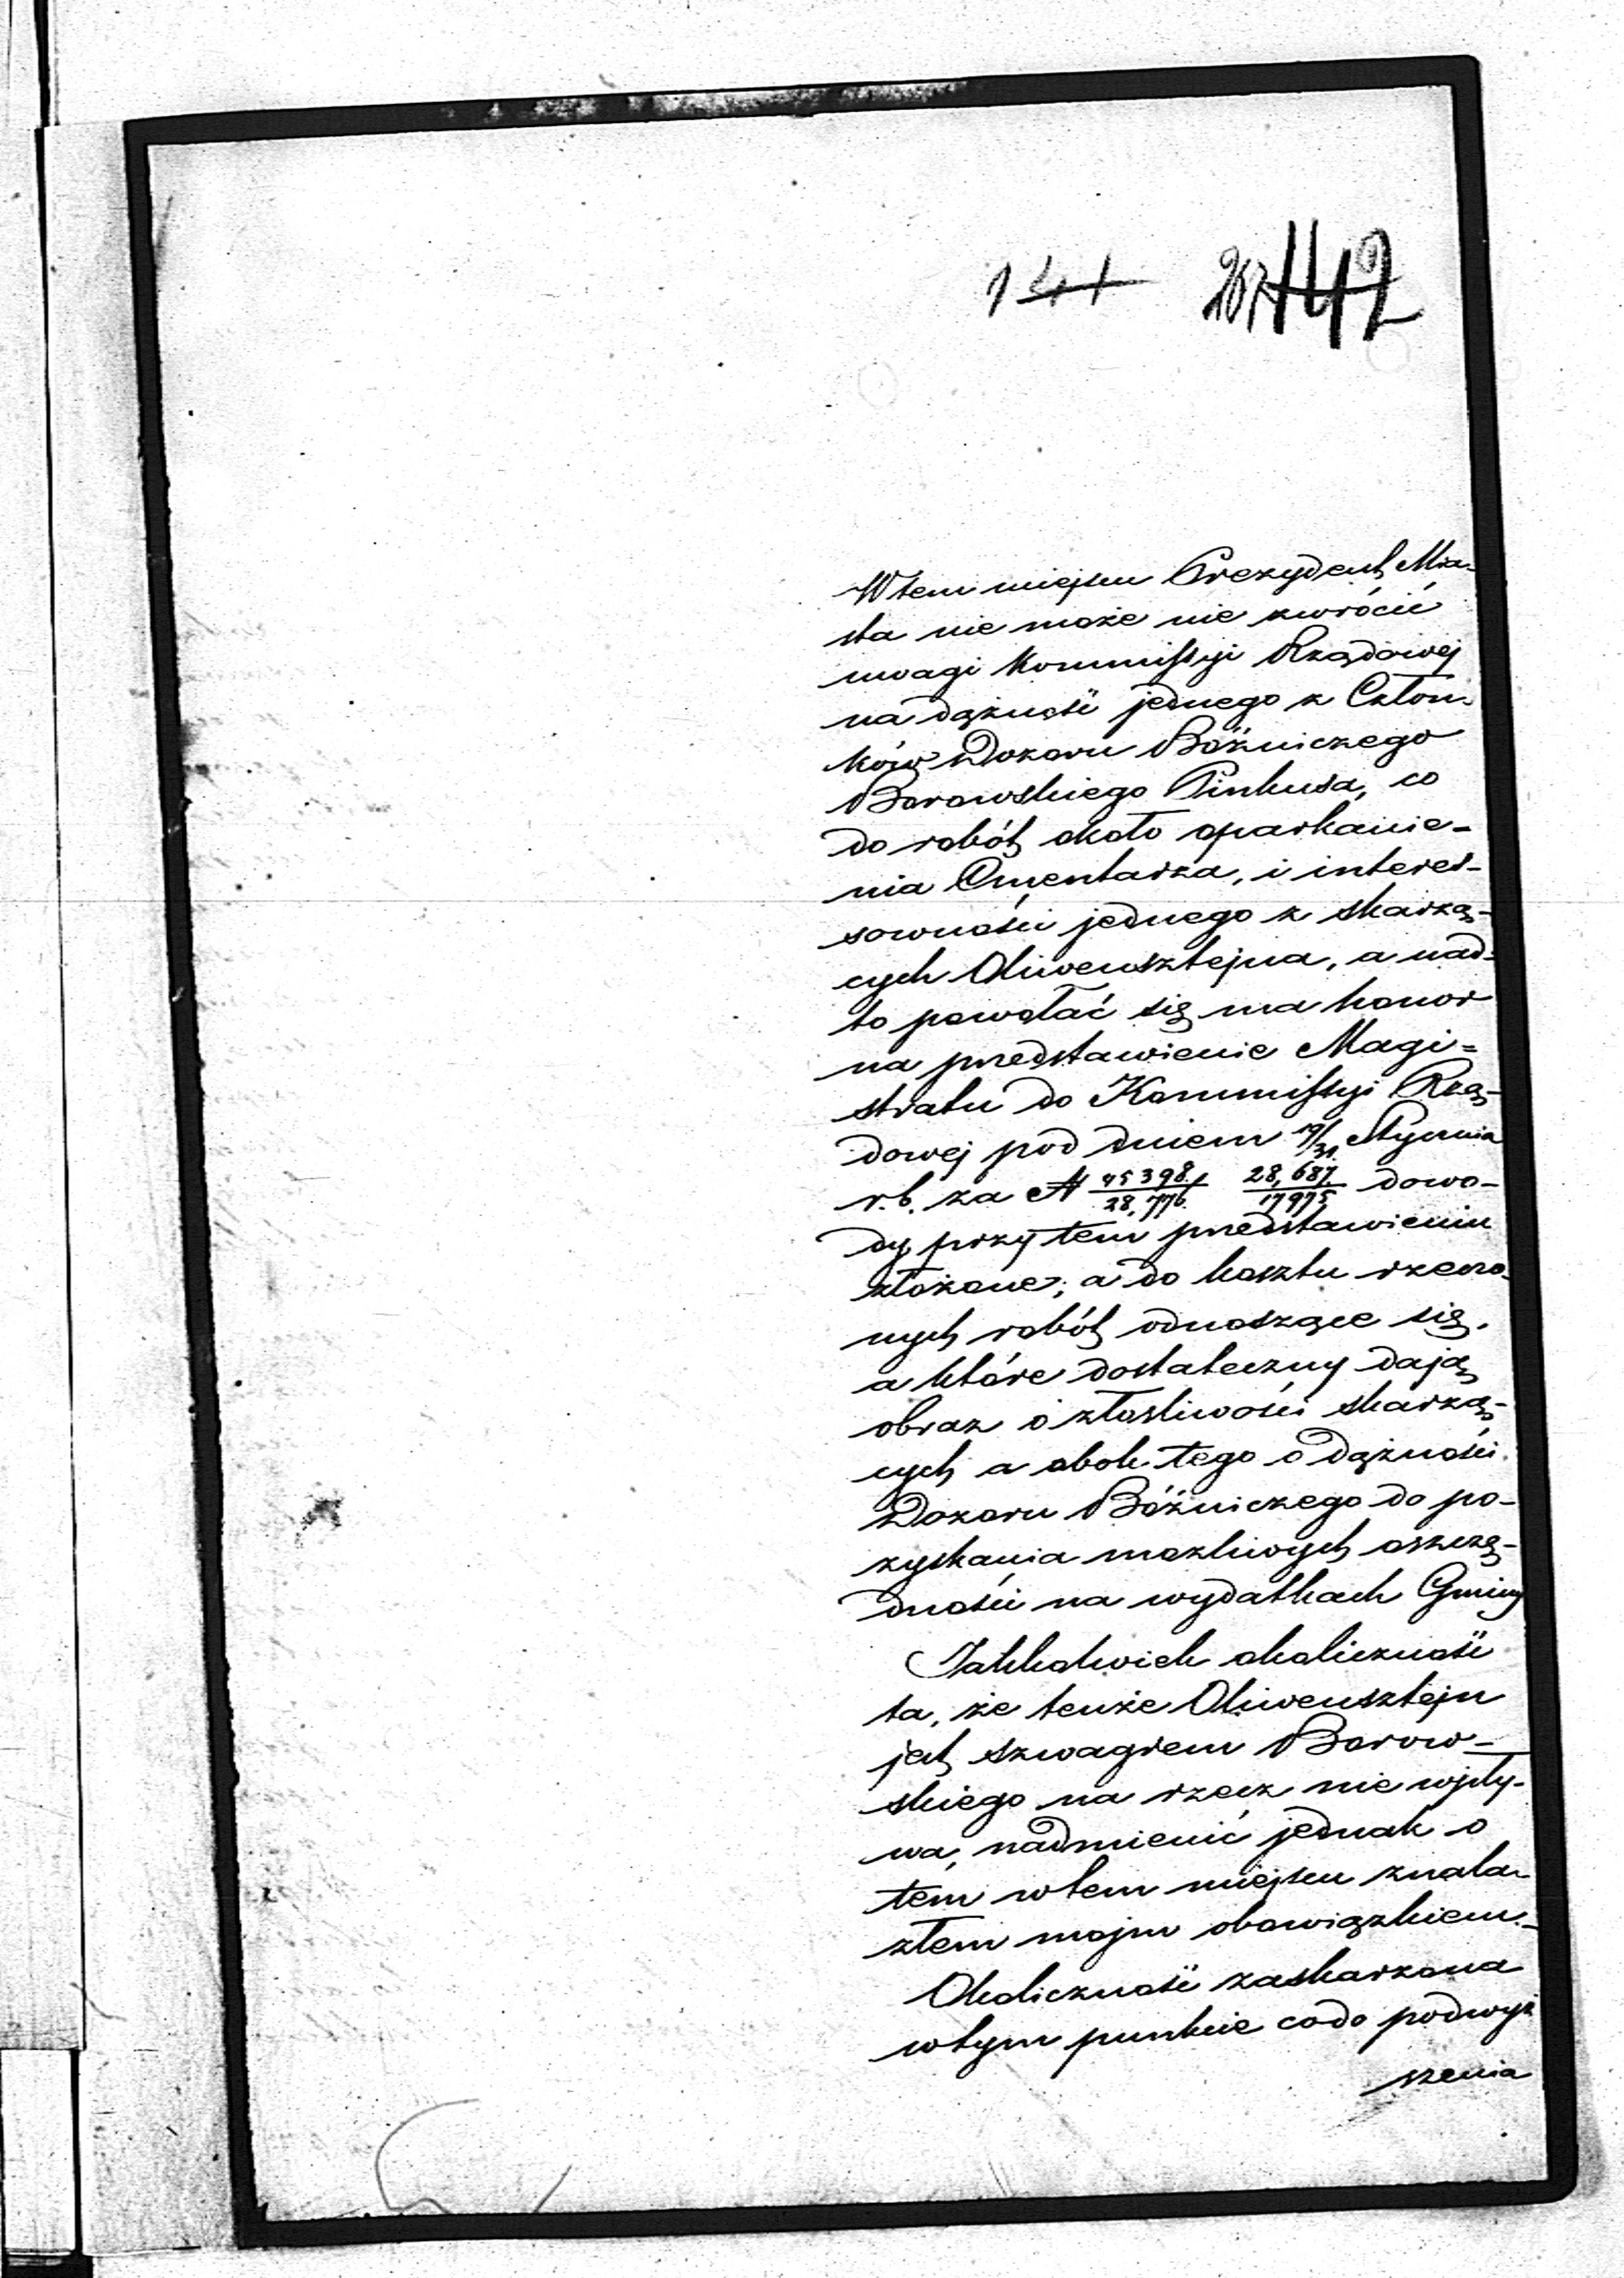 141 267 142
W tem miejscu Prezydent Mia-
sta nie może nie zwrócić
uwagi Kommissyi Rządowej
na dążność jednego z Człon-
ków Dozoru Bóżniczego
Borowskiego Pinkusa, co
do robót około oparkanie-
nia Cmentarza, i interes-
sowności jednego z skarżą-
cych Oliwensztejna, a nad-
to powołać się ma honor
na przedstawienie Magi=
stratu do Kommissyi Rzą-
dowej pod dniem 19/31 Stycznia
r.b. za N 45398/28,776 28,687/17975 dowo-
dy przy tem przedstawieniu
złożone; a do kosztu rzeczo-
nych robót odnoszące się,
a które dostateczny dają
obraz o złośliwości skarżą-
cych a obok tego o dążności
Dozoru Bóżniczego do po-
zyskania możliwych oszczę-
dności na wydatkach Gminy
Jakkolwiek okoliczność
ta, że tenże Oliwensztejn
jest szwagrem Borow-
skiego na rzecz nie wpły-
wa, nadmienić jednak o
tem w tem miejscu znala-
złem mojm obowiązkiem.-
Okoliczność zaskarżona
w tym punkcie co do podwyż
szenia